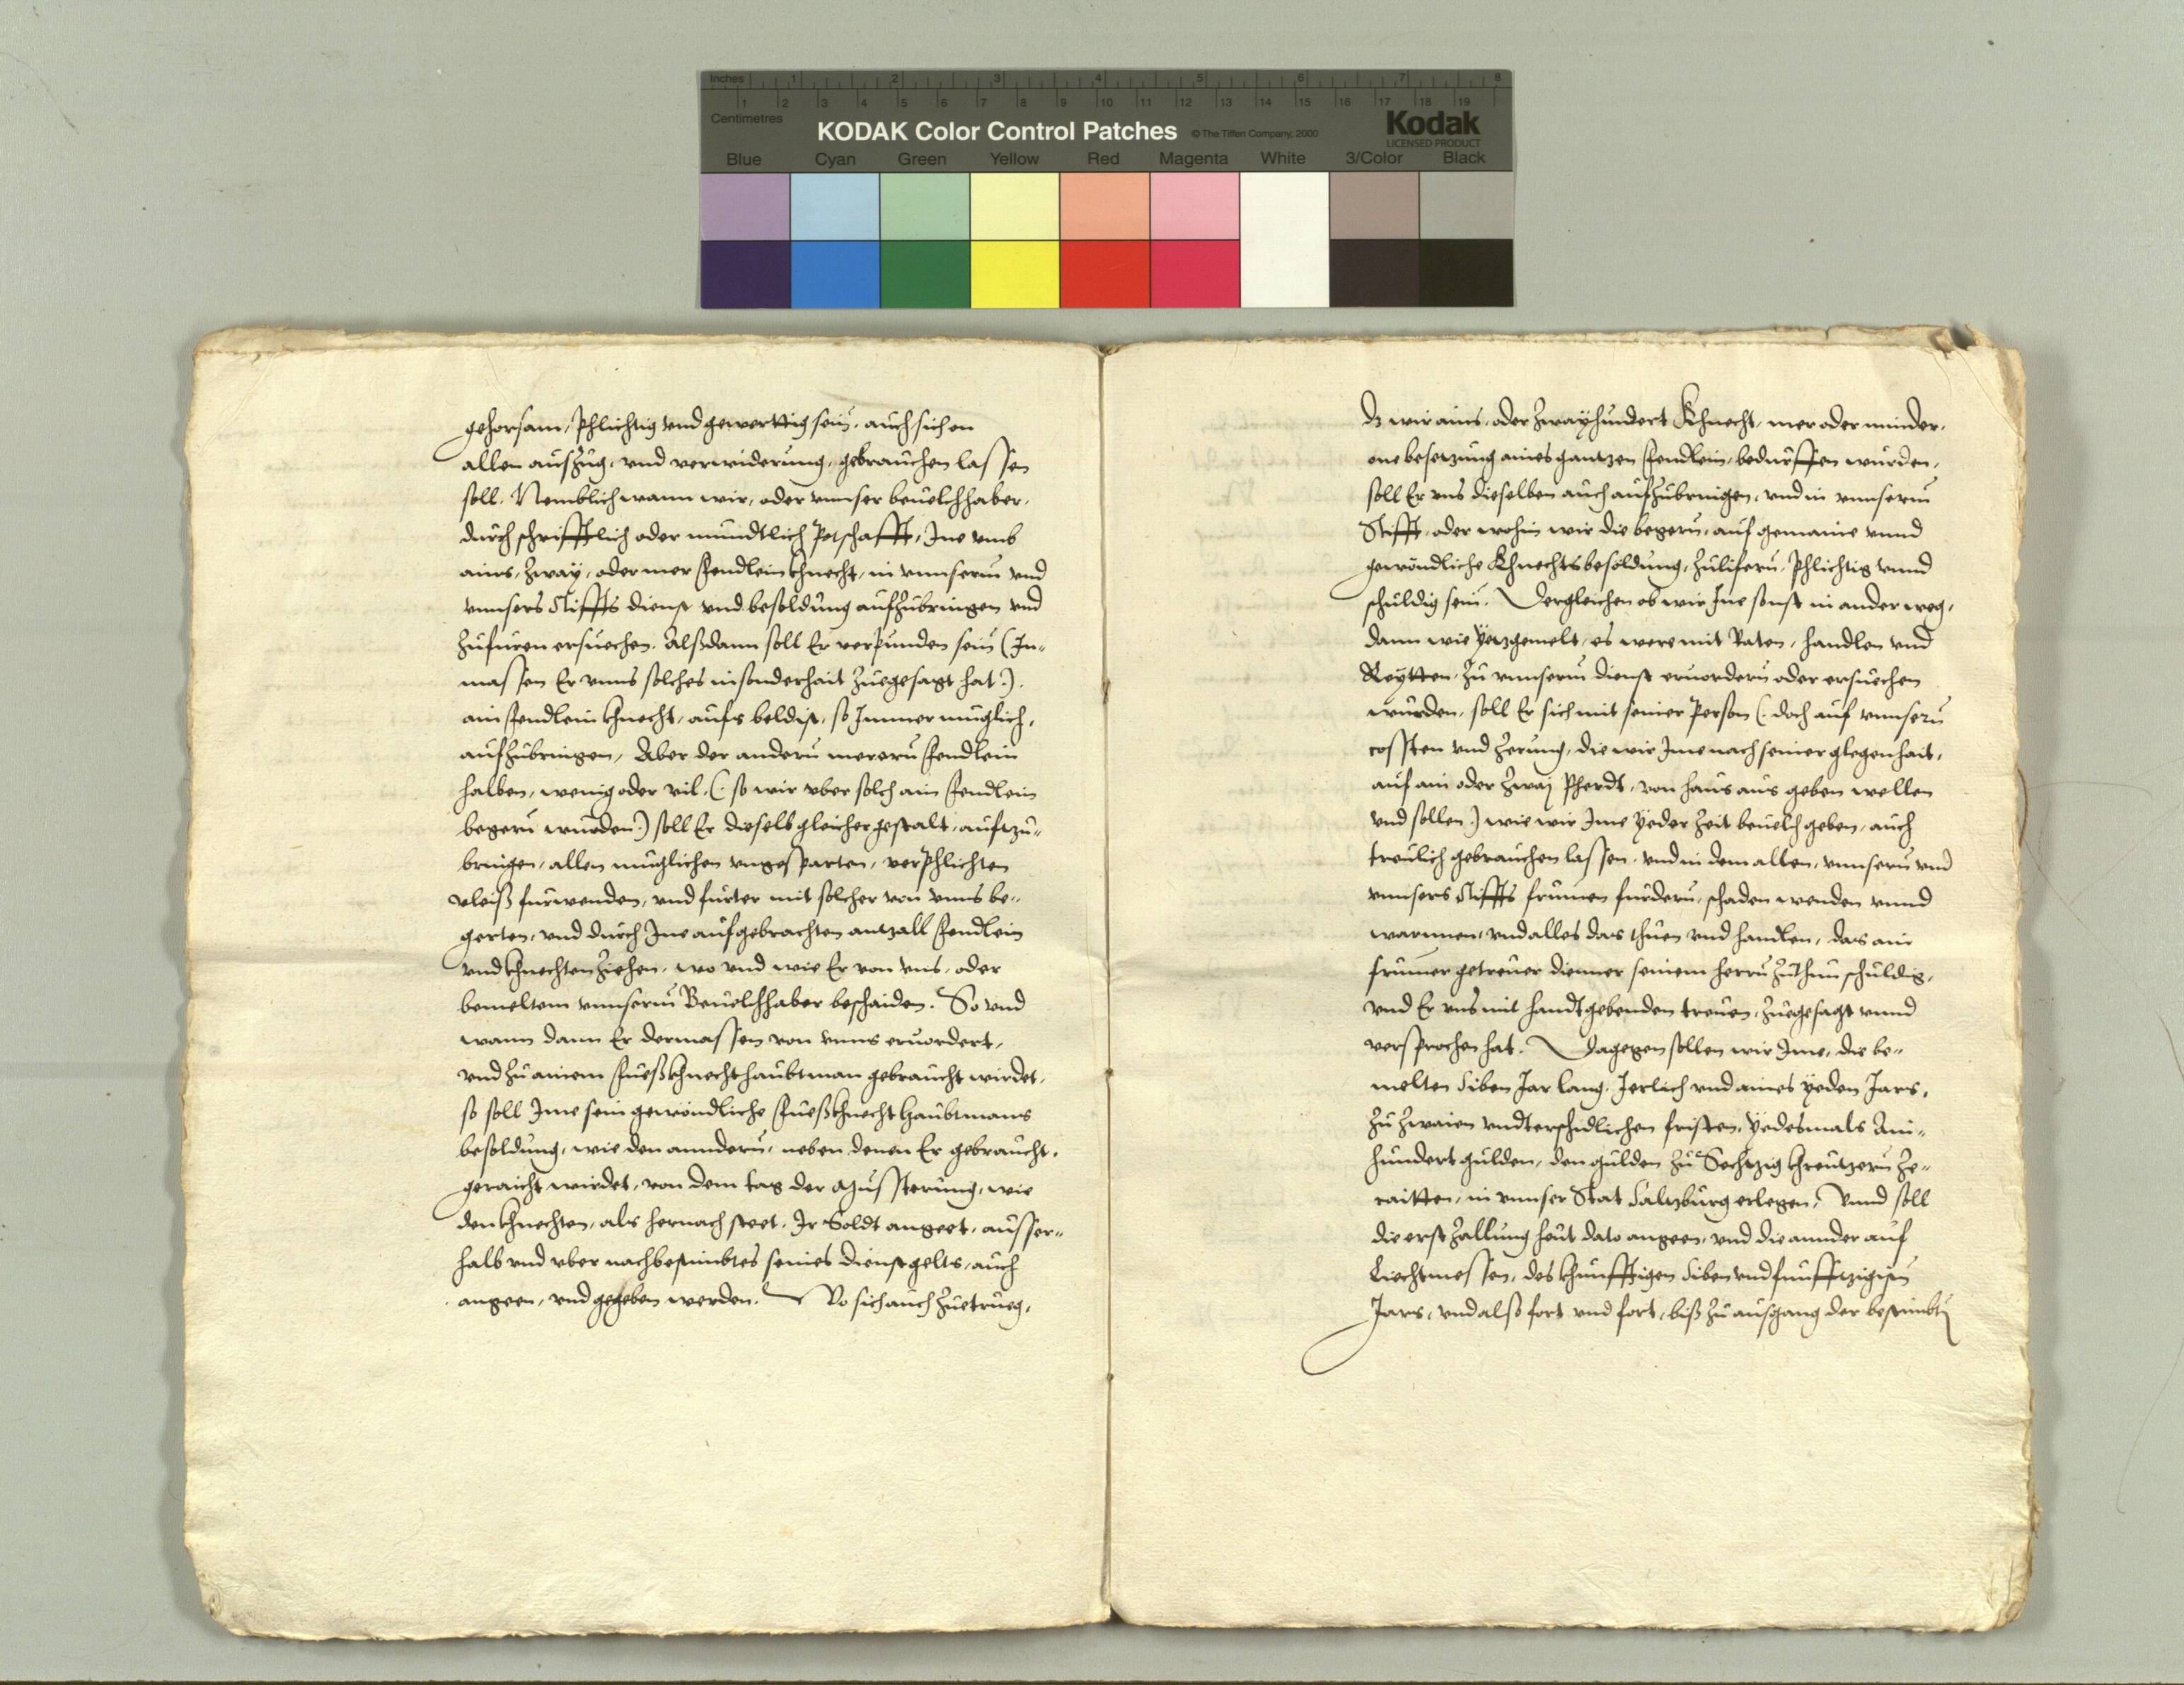 Inches 1 2 3 4 5 6 7 8
1 2 3 4 5 6 7 8 9 10 11 12 13 14 15 16 17 18 19
Centimetres
KODAK Color Control Patches © The Tiffen Company, 2000 Kodak
LICENSED PRODUCT
Blue Cyan Green Yellow Red Magenta White 3/Color Black
gehorsam, Phlichtig vnd gewerttig sein, auch sich on
allen auszug, vnd verwiderung, gebrauchen lassen
soll. Nemblich wann wir, oder vnnser beuelchhaber,
durch schrifftlich oder mundtlich Potschafft, Ine vmb
ains, zway, oder mer Fendlein khnecht, in vnnserm vnd
vnnsers Stiffts dienst vnd besoldung aufzubringen vnd
zufuren ersuechen. Alßdann soll Er verpunden sein (In-
massen Er vnns solches insonderhait zuegesagt hat:)
ain Fendlein khnecht, aufs beldist, so Immer muglich,
aufzubringen, Aber der andern merern Fendlein
halben, wenig oder vil, (: so wir vber solch ain Fendlein
begern wurden:) soll Er dieselb gleicher gestalt, aufzu-
bringen, allen muglichen vngesparten, verphlichten
vleiß furwenden, vnd furter mit solcher von vnns be-
gerten, vnd durch Ine aufgebrachten antzall Fendlein
vnd khnechten ziehen, wo vnd wie Er von vns, oder
bemeltem vnnserm Beuelchhaber beschaiden. So vnd
wann dann Er dermassen von vnns eruordert,
vnd zu ainem Fueßkhnecht haubtman gebraucht wirdet,
so soll Ime sein gewöndliche Fueßkhnecht Haubtmans
besoldung, wie den anndern, neben denen Er gebraucht,
geraicht wirdet, von dem tag der Musterung, wie
den khnechten, als hernach steet, Ir Soldt angeet, ausser-
halb vnd vber nachbestimbtes seines dienstgelts, auch
angeen, vnd gegeben werden. Wo sich auch zuetrueg,
dz wir ains, oder zwayhundert Khnecht, mer oder minder,
one besetzung aines gantzen Fendlein, bedurffen wurden,
soll Er vns dieselben auch aufzubringen, vnd in vnnserm
Stifft, oder wohin wir die begern, auf gemaine vnnd
gewöndliche Khnechtsbesoldung, zulifern, Phlichtig vnnd
schuldig sein. Dergleichen ob wir Ine sonst in ander weg,
dann wie yetzgemelt, es were mit Raten, handlen vnd
Reytten, zu vnnserm dienst eruordern oder ersuechen
wurden, soll Er sich mit seiner Person (: doch auf vnnsern
cossten vnd zerung, die wir Ime nach seiner glegenhait,
auf ain oder zway Pherdt, von haus aus geben wellen
vnd sollen:) wie wir Ime yeder zeit beuelch geben, auch
treulich gebrauchen lassen, vnd in dem allen, vnnsern vnd
vnnsers Stiffts frumen furdern, schaden wenden vnnd
warnnen, vnd alles das thuen vnd handlen, das ain
frumer getreuer dienner seinem herrn zuthun schuldig,
vnd Er vns mit handtgebenden treuen, zuegesagt vnnd
versprochen hat. Dagegen sollen wir Ime, die be-
melten Siben Jar lang, Jerlich vnd aines yeden Jars,
zu zwaien vndterschidlichen fristen, Yedesmals Ain-
hundert gulden, den gulden zu Sechzig khreutzern ge-
raitten, in vnnser Stat Saltzburg erlegen, Vnnd soll
die erst zallung heut dato angeen, vnd die annder auf
Liechtmessen, des khunfftigen Siben vnd funfftzigisten
Jars, vnd also fort vnd fort, biß zu ausgang der bestimbten